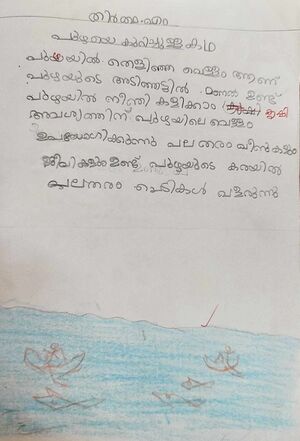 തീർത്ഥ.എം
പുഴയെ കുറിച്ചുള്ള കഥ
പുഴയിൽ തെളിഞ്ഞ വെള്ളം ആണ്
പുഴയുടെ അടിത്തട്ടിൽ മണൽ ഉണ്ട്
പുഴയിൽ നീന്തി കളിക്കാം കൃഷി
അവശ്യത്തിന് പുഴയിലെ വെള്ളം
ഉപയോഗിക്കുന്നു പല തരം മീൻകളും
ജീവികളും ഉണ്ട് പുഴയുടെ കരയിൽ
പലതരം ചെടികൾ വളരുന്നു